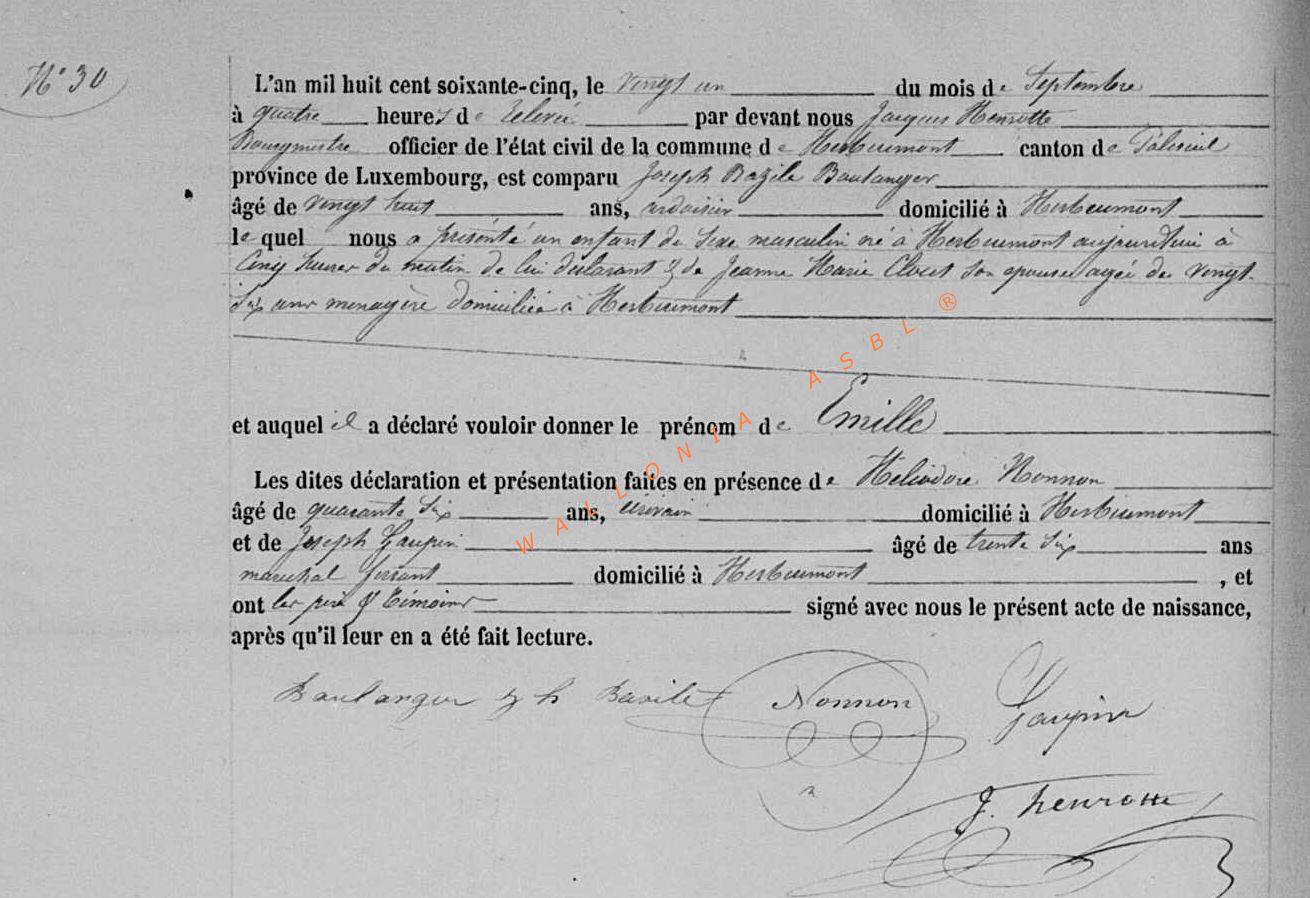 N° 30
L'an mil huit cent soixante-cinq, le vingt un du mois de Septembre
à quatre heures de relevée par devant nous Jacques Henrotte
Bourgmestre officier de l'état civil de la commune de Herbeumont canton de Paliseul
province de Luxembourg, est comparu Joseph Bazile Boulanger
âgé de vingt huit ans, ardoisier domicilié à Herbeumont
le quel nous a présenté un enfant du sexe masculin né à Herbeumont aujourd'hui à
Cinq heures du matin de lui déclarant & de Jeanne Marie son epouse agée de vingt-
six ans menagère domiciliée à Herbeumont
et auquel il a déclaré vouloir donner le prénom de Emille
Les dites déclaration et présentation faites en présence de Héliodore Nonnon
âgé de quarante six ans, domicilié à Herbeumont
et de Joseph Gaupin âgé de trente six ans
maréchal ferrant domicilié à Herbeumont , et
ont les père & témoins signé avec nous le présent acte de naissance,
après qu'il leur en a été fait lecture.
Boulanger Bazile Nonnon Gaupin
J. henrotte
WALLONIA ASBL ®